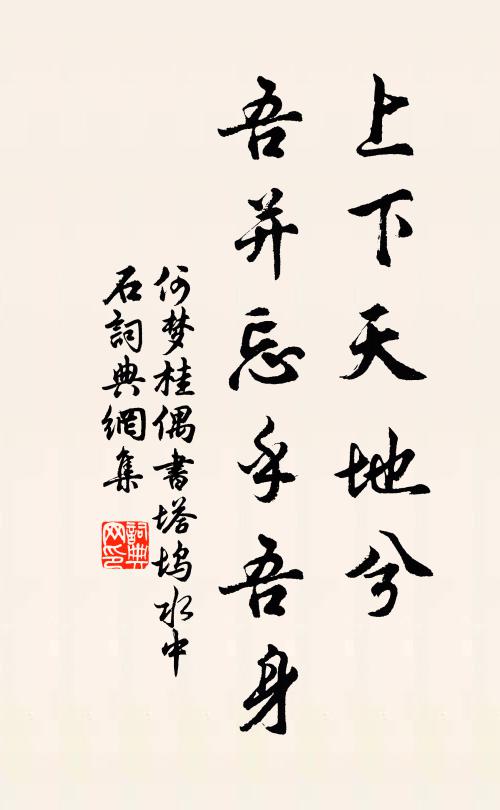 上下天地兮
吾并忘乎吾身
何梦桂偶書塔坞水中
石詞典網集
詞典网印